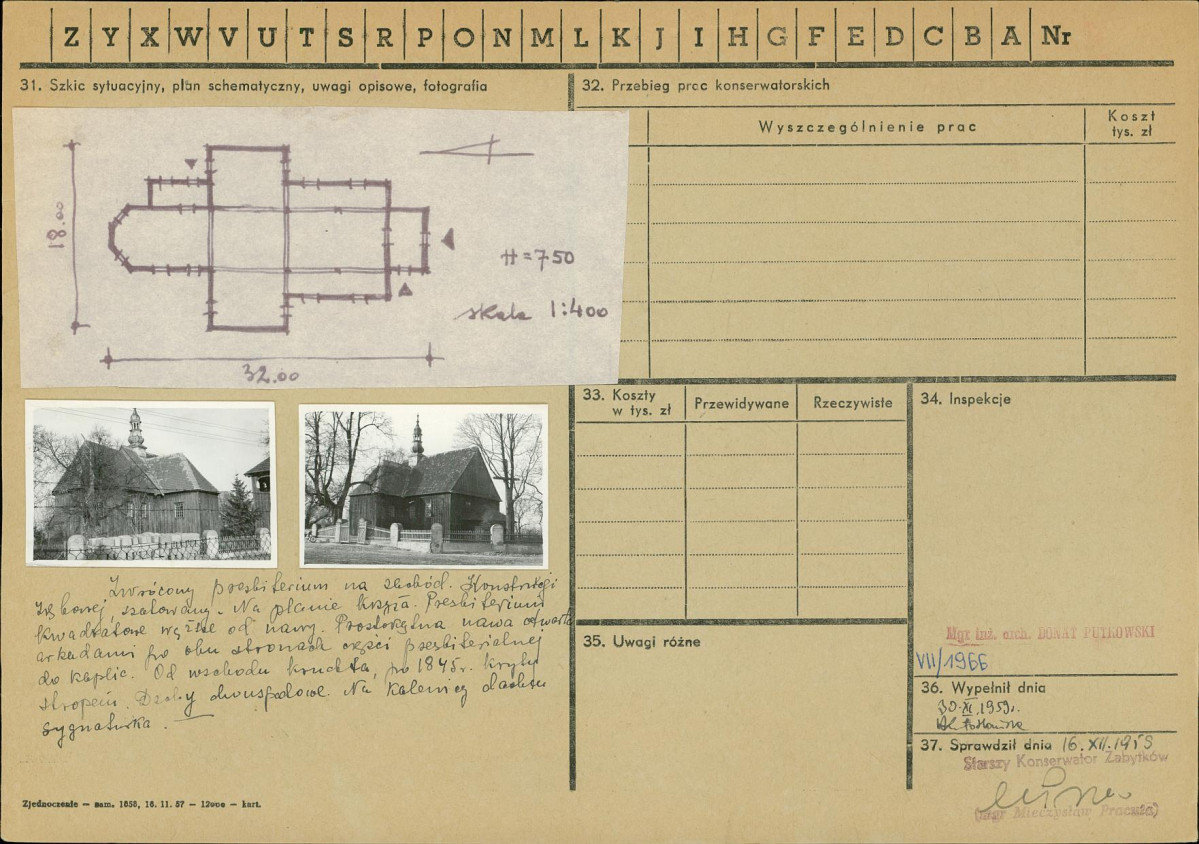 Z Y X W V U T S R P O N M L K J I H G F E D C B A Nr
31. Szkic sytuacyjny, plan schematyczny, uwagi opisowe, fotografia
18.00
32.00
H = 7.50
skala 1:400
Zwrócony presbiterium na zachód. Konstrukcji
zrębowej, szalowany. Na planie krzyża. Presbiterium
kwadratowe węższe od nawy. Prostokątna nawa otwarta
arkadami po obu stronach części presbiterialnej
do kaplic. Od wschodu kruchta, po 1845 r. kryty
stropem. Dachy dwuspadowe. Na kalenicy dachu
sygnaturka.
Zjednoczenie — zam. 1858, 16. 11. 57 — 12000 — kart.
32. Przebieg prac konserwatorskich
Wyszczególnienie prac
Koszt
tys. zł
33. Koszty
w tys. zł
Przewidywane
Rzeczywiste
34. Inspekcje
Mgr inż. arch. DONAT PUTKOWSKI
VII/1966
35. Uwagi różne
36. Wypełnił dnia
30.XI.1959r.
37. Sprawdził dnia 16.XII.1959
Starszy Konserwator Zabytków
(mgr Mieczysław